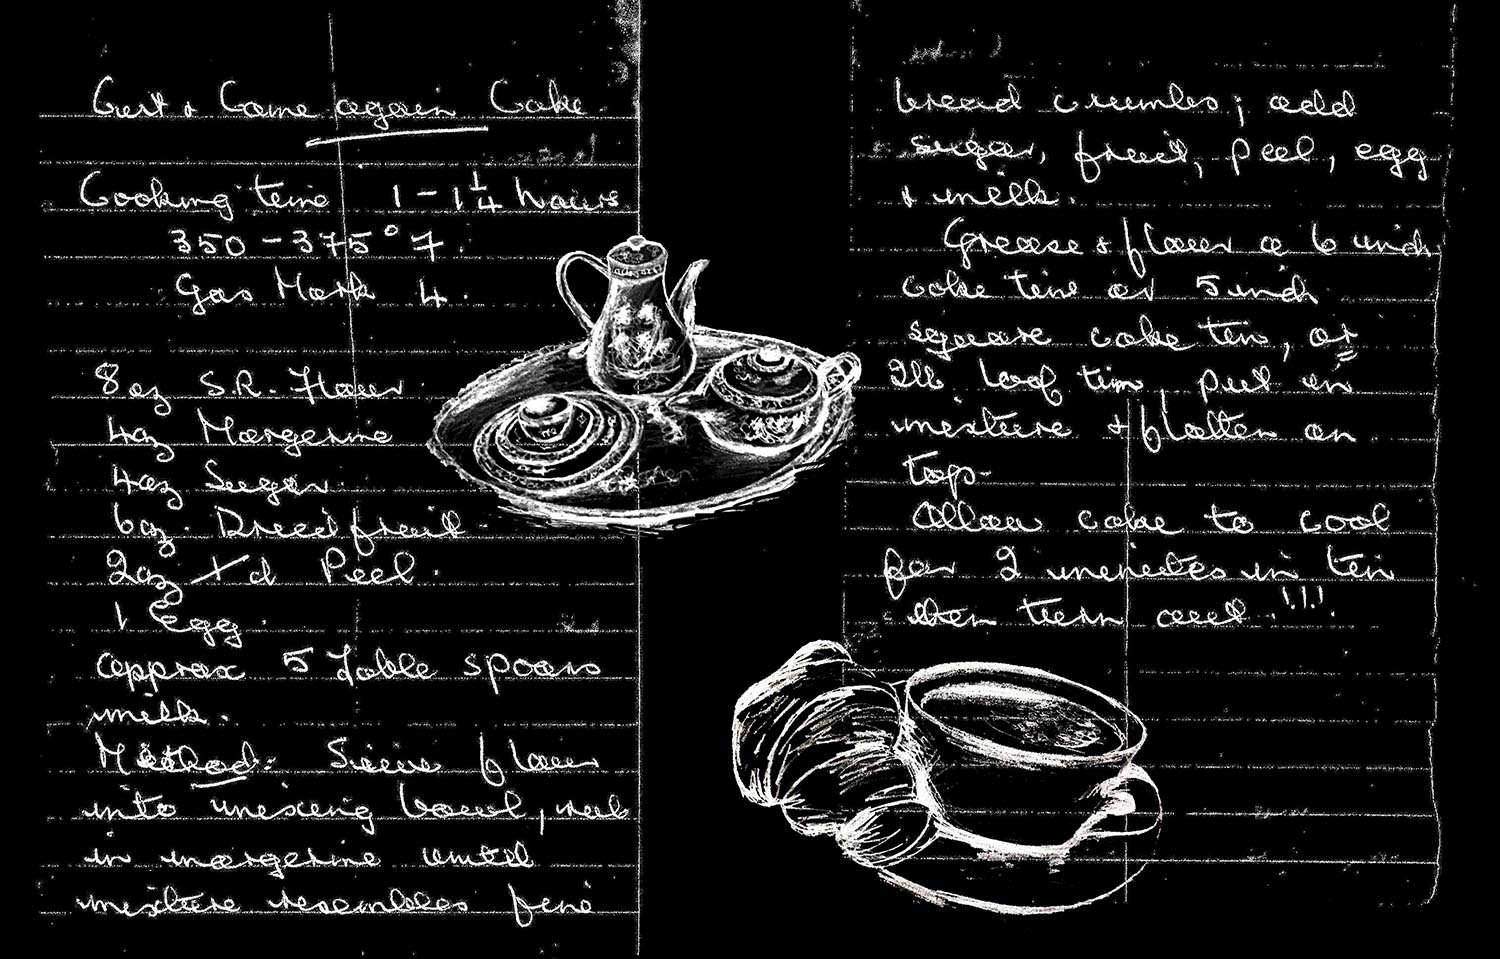 Cut & Come again Cake
Cooking time 1-1¼ hours
350-375°F.
Gas Mark 4.
8oz S.R. Flour
4oz Margerine
4oz Sugar
6oz. Dried fruit
2oz Xd Peel.
1 Egg.
approx 5 Table spoons
milk.
Method: Sieve flour
into mixing bowl, rub
in margerine until
mixture resembles fine
bread crumbs; add
sugar, fruit, peel, egg
& milk.
Grease & flour a 6 inch
cake tin or 5 inch
square cake tin, or
2lb loaf tin put in
mixture & flatten on
top.
Allow cake to cool
for 2 minutes in tin
then turn out !!!.